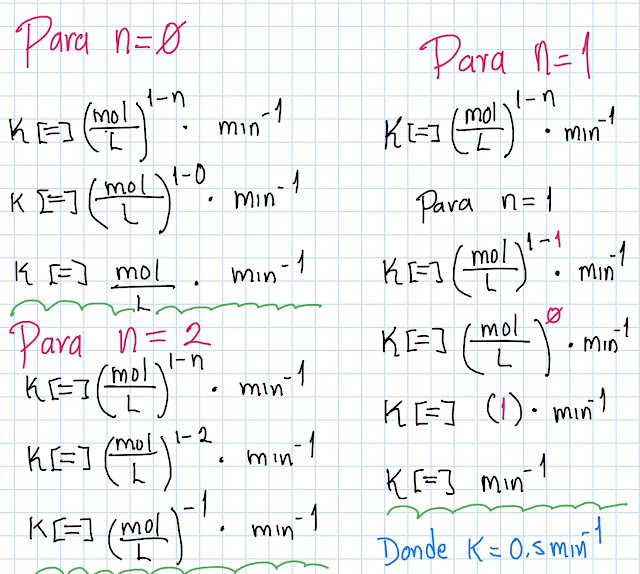 Para n=0
K [=] (mol/L)^1-n · min^-1
K [=] (mol/L)^1-0 · min^-1
K [=] mol/L · min^-1
Para n=2
K[=] (mol/L)^1-n · min^-1
K[=] (mol/L)^1-2 · min^-1
K[=] (mol/L)^-1 · min^-1
Para n=1
K[=] (mol/L)^1-n · min^-1
Para n=1
K[=] (mol/L)^1-1 · min^-1
K[=] (mol/L)^0 · min^-1
K[=] (1) · min^-1
K[=] min^-1
Donde K=0.5min^-1